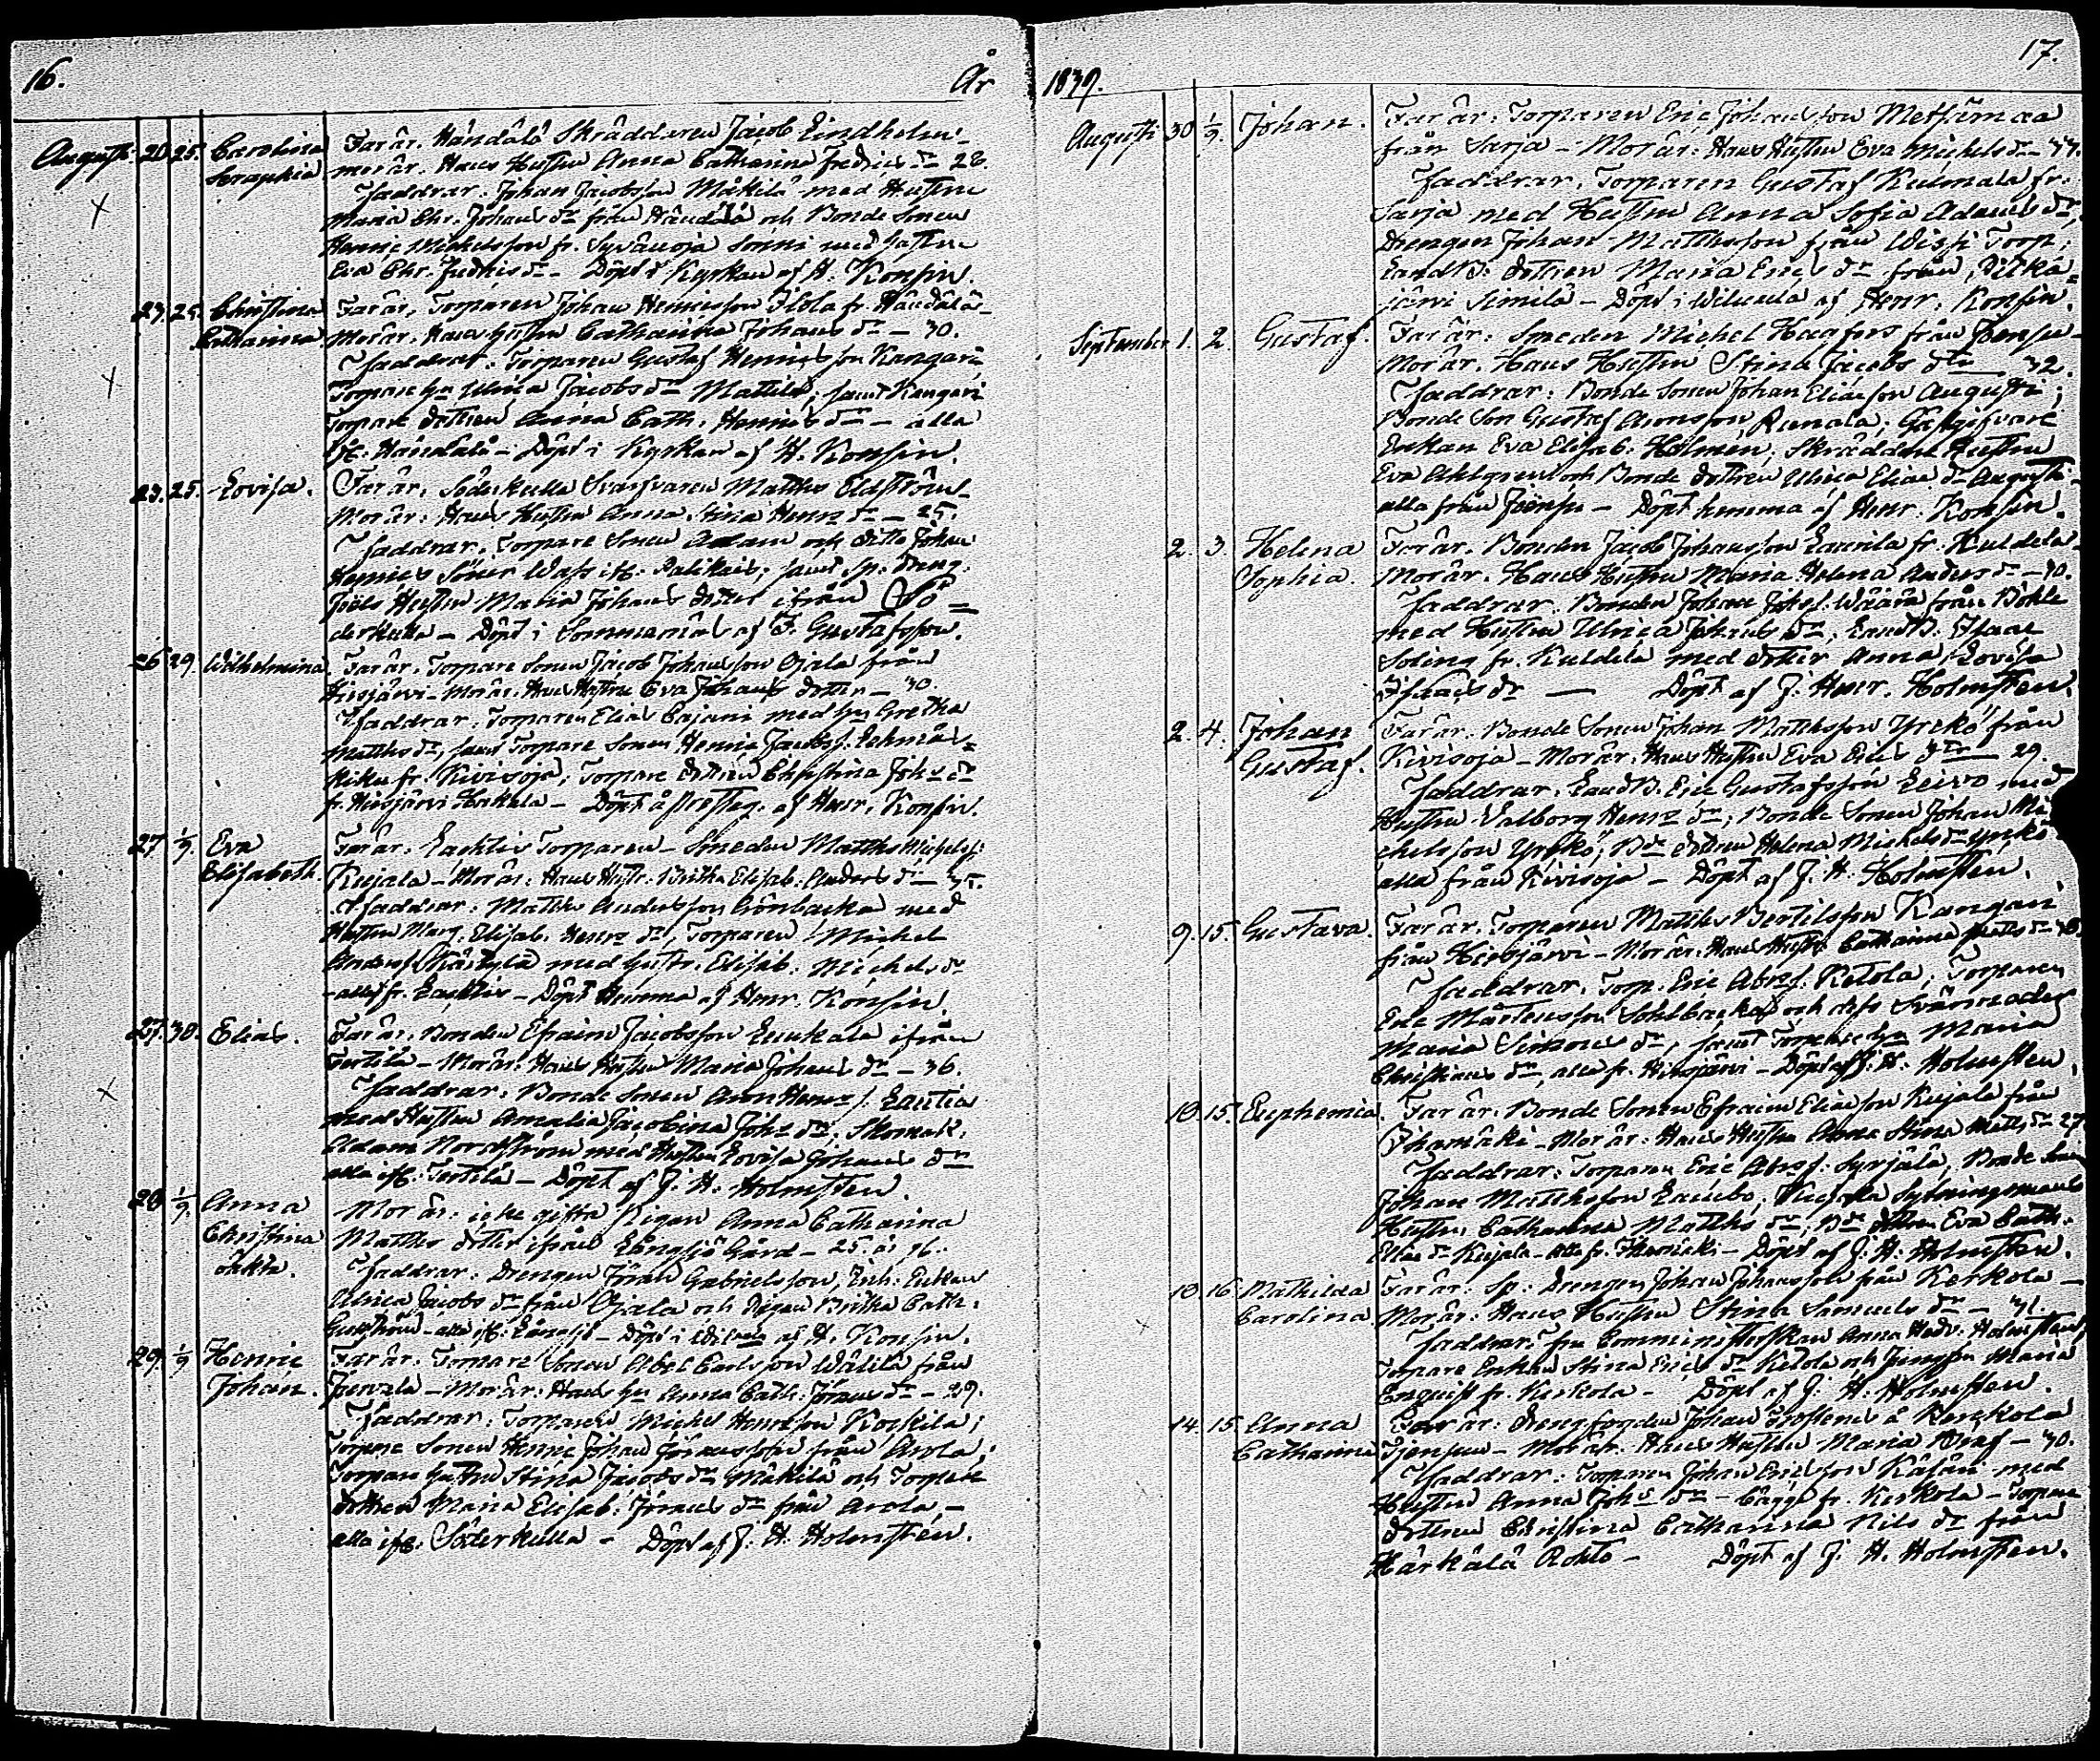 16. År
Augusti 20. 25. Carolina Far är. Håndålå Skräddaren Jacob Lindholm
Seraphia. mor är. Hans Hustru Anna Catharina Fredrics dr 28.
Faddrar. Johan Jacobsson Mäkilä med Hustru
Maria Chr. Johans dr från Håndålå och Bonde Sonen
Henric Michelsson fr. Syvänoja Sonni med hustru
Eva Chr. Fredrics dr – Döpt i Kyrkan af H. Konsin.
23. 25. Christina Far är. Torparen Johan Henricsson fr. Håndålå –
Catharina Mor är. Hans hustru Catharina Johans dr – 30.
Faddrar. Torparen Gustaf Henricsson Kangari
Torpare Ulrica Jacobs dr Mattila, samt Kangari
Torpare dottren Anna Cath. Henrics dr – alla
ifr. Håndålå – Döpt i Kyrkan af H. Konsin.
23. 25. Lovisa. Far är. Söderkulla Svarfvaren Matths Eldström –
Mor är. Hans Hustru Anna Stina Henr dr – 25.
Faddrar. Torpare Sonen Adam och ditto Johan
Henrics Söner samt Sp. Dreng.
Joels Hustru Maria Johans dotter ifrån Sö=
derkulla – Döpt i Sommarnäs af G. Gustafsson.
26 29. Wilhelmina. Far är. Torpare Sonen Jacob Johansson Ojala från
Hirsjärvi – Mor är. Hans Hustru Eva Johans dotter – 30
Faddrar. Torparen Elias Cajani med hu Gretha
Matths dr, samt Torpare Sonen Henric Jacobs.
fr. Kivisoja, Torpare dottren Christina Johs dr
fr. Hirsjärvi Hakala – Döpt å prestg. af Henr. Konsin.
27 1/9. Eva Far är. Torparen – Smeden Matths Michels.
Elisabeth. Kujala – Mor är. Hans Hustr. Britha Elisab. Anders dr – 35.
Faddrar: Matths Andersson Grönbacka med
Hustru Marg. Elisab. Henr dr, Torparen Michel
Anders. med hustr. Elisab. Michels dr
– Döpt hemma af Henr. Konsin.
27. 30. Elias. Far är. Bonden Efraim Jacobsson ifrån
Terttilä – Mor är. Hans Hustru Maria Johans dr – 36.
Faddrar. Bonde Sonen Aron Henr. Lautia
med Hustru Amalia Jacobina Johs dr, Skomak.
Adam Nordström med Hustru Lovisa Johans dr
alla ifr. Terttilä – Döpt af J. H. Holmsten.
28 1/9. Anna Mor är. icke gifta Pigan Anna Catharina
Christina Matths dotter ifrån Långsjö Gård – 25. år 16.
oäkta. Faddrar. Drengen Göran Gabrielsson, Enkan
Ulrica Jacobs dr från Ojala och Pigan Britha Cath.
Gustström – alla ifr. Långsjö – Döpt i af H. Konsin.
29. 1/9 Henric Far är. Torpare Sonen Abel Carlsson Wälilä från
Johan. – Mor är. Hans hu Anna Cath. Görans dr – 29.
Faddrar. Torparen Michel Henricsson Koskila;
Torpare Sonen Henric Johan Göransson från Arola;
Torpare hustru Stina Jacobs dr Mäkilä och Torpare
dottren Maria Elisab. Görans dr från Arola –
alla ifr. Söderkulla – Döpt af J. H. Holmsten.
1839. 17.
Augusti 30 1/9. Johan. Far är. Torparen Eric Johansson Metsämaa
från Sarja – Mor är: Hans Hustru Eva Michels dr – 33.
Faddrar. Torparen Gustaf Kulmala fr.
Sarja med Hustru Anna Sofia Adams dr,
Drengen Johan Matthsson från Torp;
LandB. dottren Maria Erics dr från Pitkä=
järvi Similä – Döpt i af Henr. Konsin.
September 1. 2. Gustaf. Far är. Smeden Michel Hagfors från Jåensu –
Mor är. Hans Hustru Stina Jacobs dtr 32.
Faddrar: Bonde Sonen Johan Eliasson Augusti;
Bonde Son Gustaf Aronsson Runala; Gästgifvare
Enkan Eva Elisab. Holmén, Skräddare Hustru
Eva Ahlgren och Bonde dottren Ulrica Elias dr Augusti
alla från – Döpt hemma af Henr. Konsin.
2. 3. Helena Far är. Bonden Jacob Johansson Laurila fr. Kuldela
Sophia. Mor är. Hans Hustru Maria Helena Anders dr – 30.
Faddrar. Bonden Johan Johs. från
med Hustru Ulrica Johans dr, LandB. Isaac
Soling fr. Kuldela med dotter Anna Lovisa
Isaacs dr — Döpt af J. Henr. Holmsten.
2. 4. Johan Far är. Bonde Sonen Johan Matthsson Yrckö från
Gustaf. Kivisoja – Mor är. Hans Hustru Eva Erics dtr 29.
Faddrar. LandB. Eric Gustafsson Leivo med
Hustru Valborg Henr dr, Bonde Sonen Johan Mi
chelsson Yrckö, Bde dottren Helena Michels dr Yrckö
alla från Kivisoja – Döpt af J. H. Holmsten.
9. 15. Gustava. Far är. Torparen Matths Bertilsson Kangan
från Hirsjärvi – Mor är. Hans Hustru Catharina Matts dr
Faddrar. Torp. Eric Abrs. Ketola, Torparen
Eric Mårtensson Sohlbacka och dess Svärmoder
Maria Simons dr, samt Torpare hu Maria
Christians dr, alla fr. Hirsjärvi – Döpt af J. H. Holmsten.
10. 15. Euphemia. Far är. Bonde Sonen Efraim Eliasson Kujala från
Ihamäki – Mor är: Hans Hustru Anna Stina Matts dr 27
Faddrar: Torparen Eric Abrs. Syrjälä, Bonde Sonen
Johan Matthsson Kujala Sytningsmans
Hustru Catharina Matths dr, Bde dottren Eva Cath.
Elias dr Kujala – alla fr. Ihamäki – Döpt af J. H. Holmsten.
10. 16. Mathilda Far är: Sp: Drengen Johan Johansson från Kerkola –
Carolina Mor är: Hans Hustru Stina Samuels dr – 31.
Faddrar. Fru Comministerskan Anna Hedv. Holmsten,
Torpare Enkan Stina Erics dr Ketola och Jungfru Maria
Enquist fr. Kerkola – Döpt af J. H. Holmsten.
14. 15. Anna Far är: Drengfogden Johan å Kerckola
Catharina – Mor är. Hans Hustru Maria – 30.
Faddrar: Torparen Johan Ericsson med
Hustru Anna Johs dr – fr. Kerkola – Torpare
dottren Christina Catharina Nils dr från
Härkälä – Döpt af J. H. Holmsten.